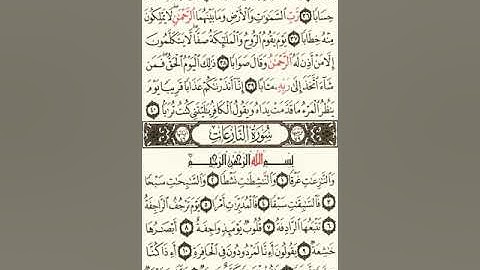 حِسَابًا ٣٦ رَبِّ السَّمَوَاتِ وَالْأَرْضِ وَمَا بَيْنَهُمَا الرَّحْمَنِ لَا يَمْلِكُونَ
مِنْهُ خِطَابًا ٣٧ يَوْمَ يَقُومُ الرُّوحُ وَالْمَلَئِكَةُ صَفًّا لَا يَتَكَلَّمُونَ
إِلَّا مَنْ أَذِنَ لَهُ الرَّحْمَنُ وَقَالَ صَوَابًا ٣٨ ذَلِكَ الْيَوْمُ الْحَقُّ فَمَن
شَاءَ اتَّخَذَ إِلَى رَبِّهِ مَئَابًا ٣٩ إِنَّا أَنذَرْنَكُمْ عَذَابًا قَرِيبًا يَوْمَ
يَنظُرُ الْمَرْءُ مَا قَدَّمَتْ يَدَاهُ وَيَقُولُ الْكَافِرُ يَلَيْتَنِي كُنتُ تُرَبًا ٤٠
سُورَةُ النَّازِعَاتِ
بِسْمِ اللَّهِ الرَّحْمَنِ الرَّحِيمِ
وَالنَّزِعَتِ غَرْقًا ١ وَالنَّشِطَتِ نَشْطًا ٢ وَالسَّبِحَتِ سَبْحًا
٣ فَالسَّبِقَتِ سَبْقًا ٤ فَالْمُدَبِّرَتِ أَمْرًا ٥ يَوْمَ تَرْجُفُ الرَّاجِفَةُ
٦ تَتْبَعُهَا الرَّادِفَةُ ٧ قُلُوبٌ يَوْمَئِذٍ وَاجِفَةٌ ٨ أَبْصَرُهَا
خَشِعَةٌ ٩ يَقُولُونَ أَءِنَّا لَمَرْدُودُونَ فِي الْحَافِرَةِ ١٠ أَءِذَا كُنَّا